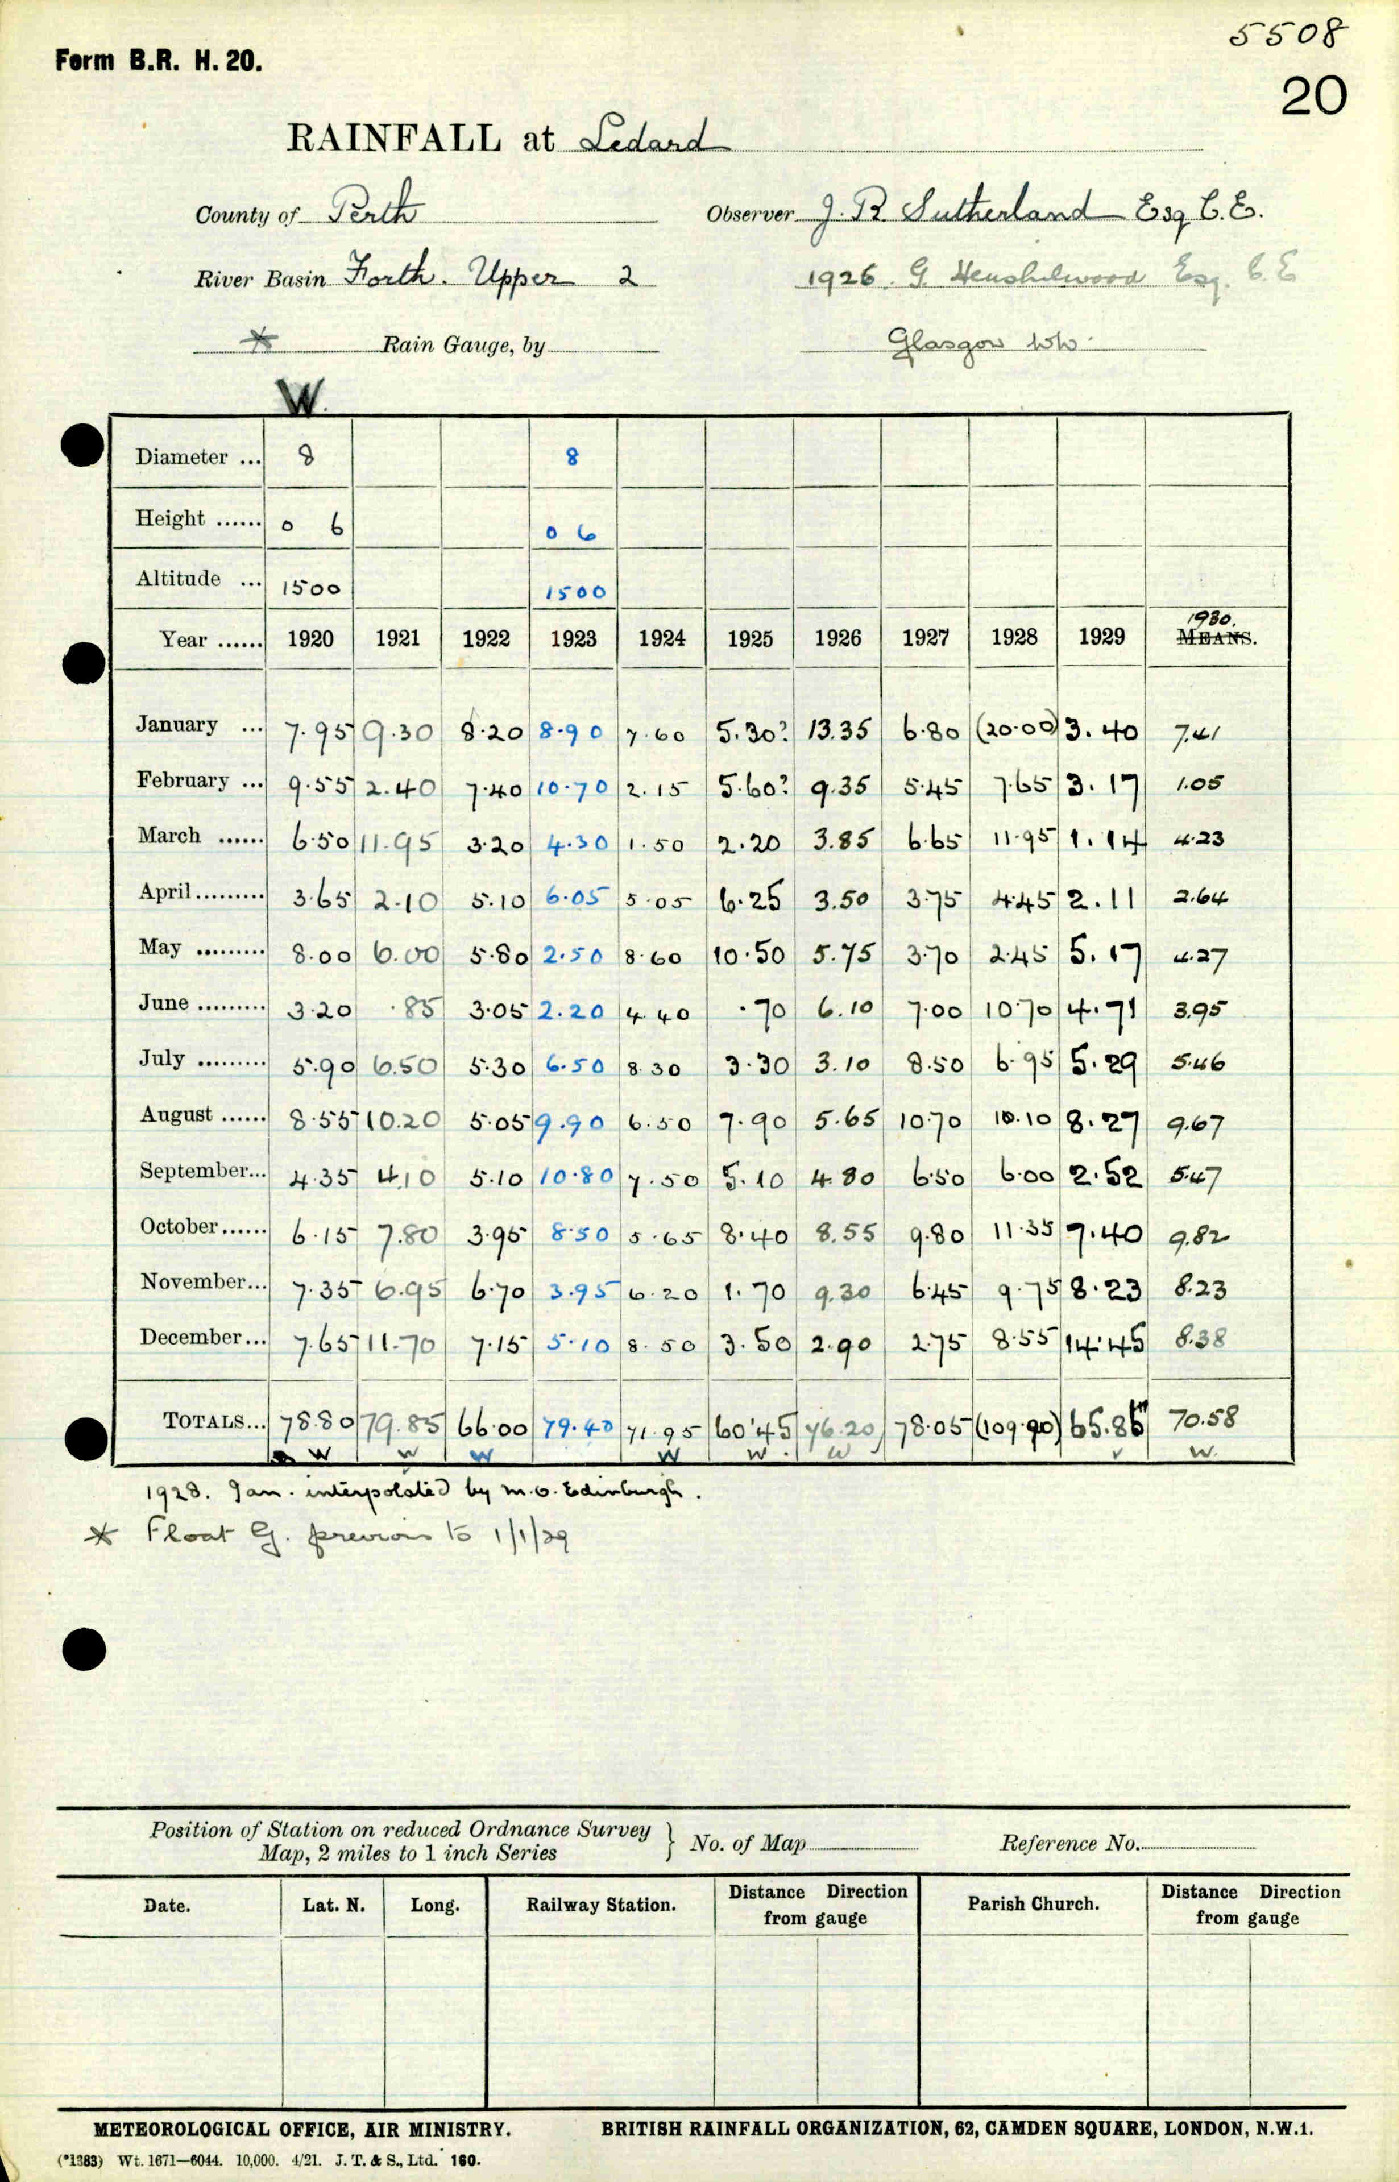 5508
Form B.R. H. 20.
20
RAINFALL at Ledard
County of Perth Observer J. R Sutherland Esq C.E.
River Basin Forth. Upper 2 1926. G. Henshilwood Esq. C.E
* Rain Gauge, by Glasgow WW.
W.
Diameter ... 8 8
Height ...... 0 6 0 6
Altitude ... 1500 1500
1930.
Year ...... 1920 1921 1922 1923 1924 1925 1926 1927 1928 1929 MEANS.
January ... 7.95 9.30 8.20 8.90 7.60 5.30? 13.35 6.80 (20.00) 3.40 7.41
February ... 9.55 2.40 7.40 10.70 2.15 5.60? 9.35 5.45 7.65 3.17 1.05
March ...... 6.50 11.95 3.20 4.30 1.50 2.20 3.85 6.65 11.95 1.14 4.23
April......... 3.65 2.10 5.10 6.05 5.05 6.25 3.50 3.75 4.45 2.11 2.64
May ......... 8.00 6.00 5.80 2.50 8.60 10.50 5.75 3.70 2.45 5.17 4.27
June ......... 3.20 .85 3.05 2.20 4.40 .70 6.10 7.00 10.70 4.71 3.95
July ......... 5.90 6.50 5.30 6.50 8.30 3.30 3.10 8.50 6.95 5.29 5.46
August ...... 8.55 10.20 5.05 9.90 6.50 7.90 5.65 10.70 10.10 8.27 9.67
September... 4.35 4.10 5.10 10.80 7.50 5.10 4.80 6.50 6.00 2.52 5.47
October...... 6.15 7.80 3.95 8.50 5.65 8.40 8.55 9.80 11.35 7.40 9.82
November... 7.35 6.95 6.70 3.95 6.20 1.70 9.30 6.45 9.75 8.23 8.23
December... 7.65 11.70 7.15 5.10 8.50 3.50 2.90 2.75 8.55 14.45 8.38
TOTALS... 78.80 79.85 66.00 79.40 71.95 60.45 76.20 78.05 (109.90) 65.86 70.58
W W W W W W v W
1928. Jan. interpolated by M.O. Edinburgh.
* Float G. previous to 1/1/29
Position of Station on reduced Ordnance Survey
Map, 2 miles to 1 inch Series } No. of Map Reference No.
Date. Lat. N. Long. Railway Station. Distance Direction from gauge Parish Church. Distance Direction from gauge
METEOROLOGICAL OFFICE, AIR MINISTRY. BRITISH RAINFALL ORGANIZATION, 62, CAMDEN SQUARE, LONDON, N.W.1.
(*1383) Wt. 1671—6044. 10,000. 4/21. J. T. & S., Ltd. 160.